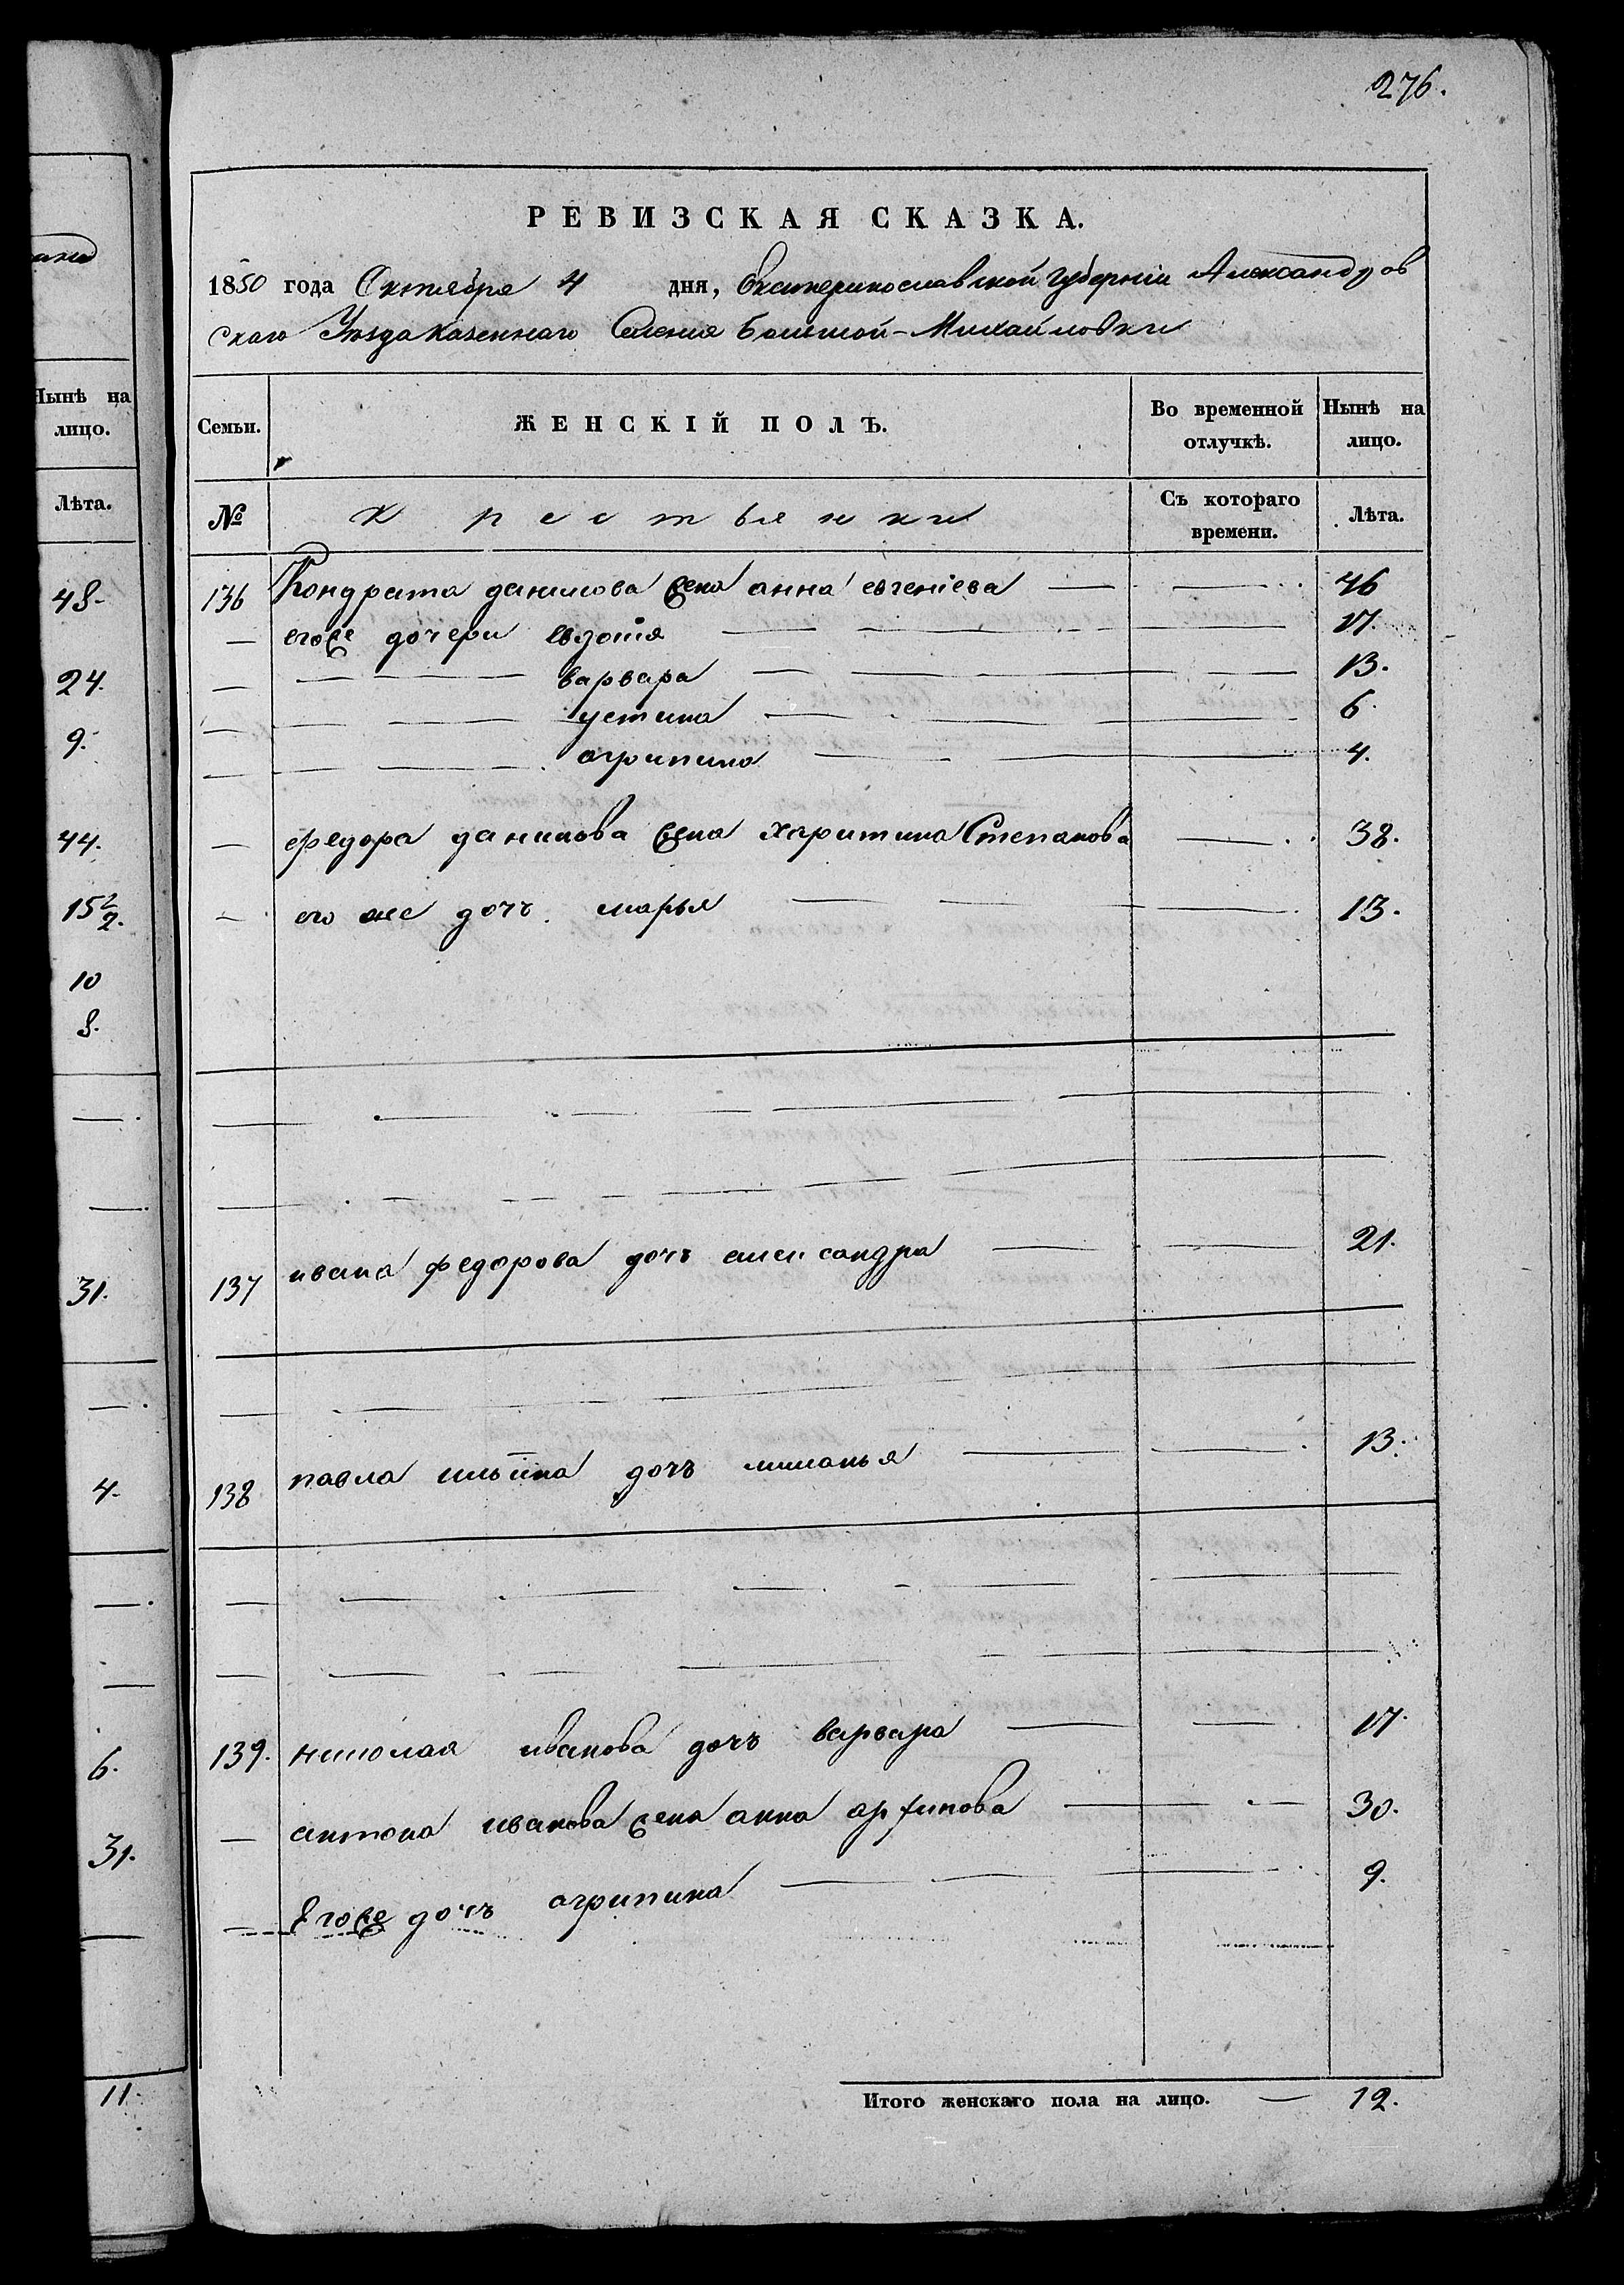 276.
РЕВИЗСКАЯ СКАЗКА.
1850 года Октября 4 дня, Екатеринославской губерніи Александров
скаго Уѣзда казеннаго Селения Большой-Михайловки
Нынѣ на
лицо.
Лѣта.
48.
24.
9.
44.
15 1/2.
10
8.
31.
4.
6.
31.
11.
Семьи. ЖЕНСКІЙ ПОЛЪ. Во временной отлучкѣ. Нынѣ на лицо.
№ Крестьянки Съ котораго времени. Лѣта.
136 Кондрата данилова жена анна евгеніева — — 46
— егоже дочери евдотя — — 17.
— — — варвара — — 13.
— — — устина — — 6.
— — — агрипина — — 4.
— федора данилова жена харитина Степанова — 38.
— его же дочь марья — — 13.
137 ивана федорова дочь александра — — 21.
138 павла ильина дочь миланья — — 13.
139. николая иванова дочь варвара — — 17.
— антона иванова жена анна архипова — — 30.
— Егоже дочь агрипина — — 9.
Итого женскаго пола на лицо. — 12.